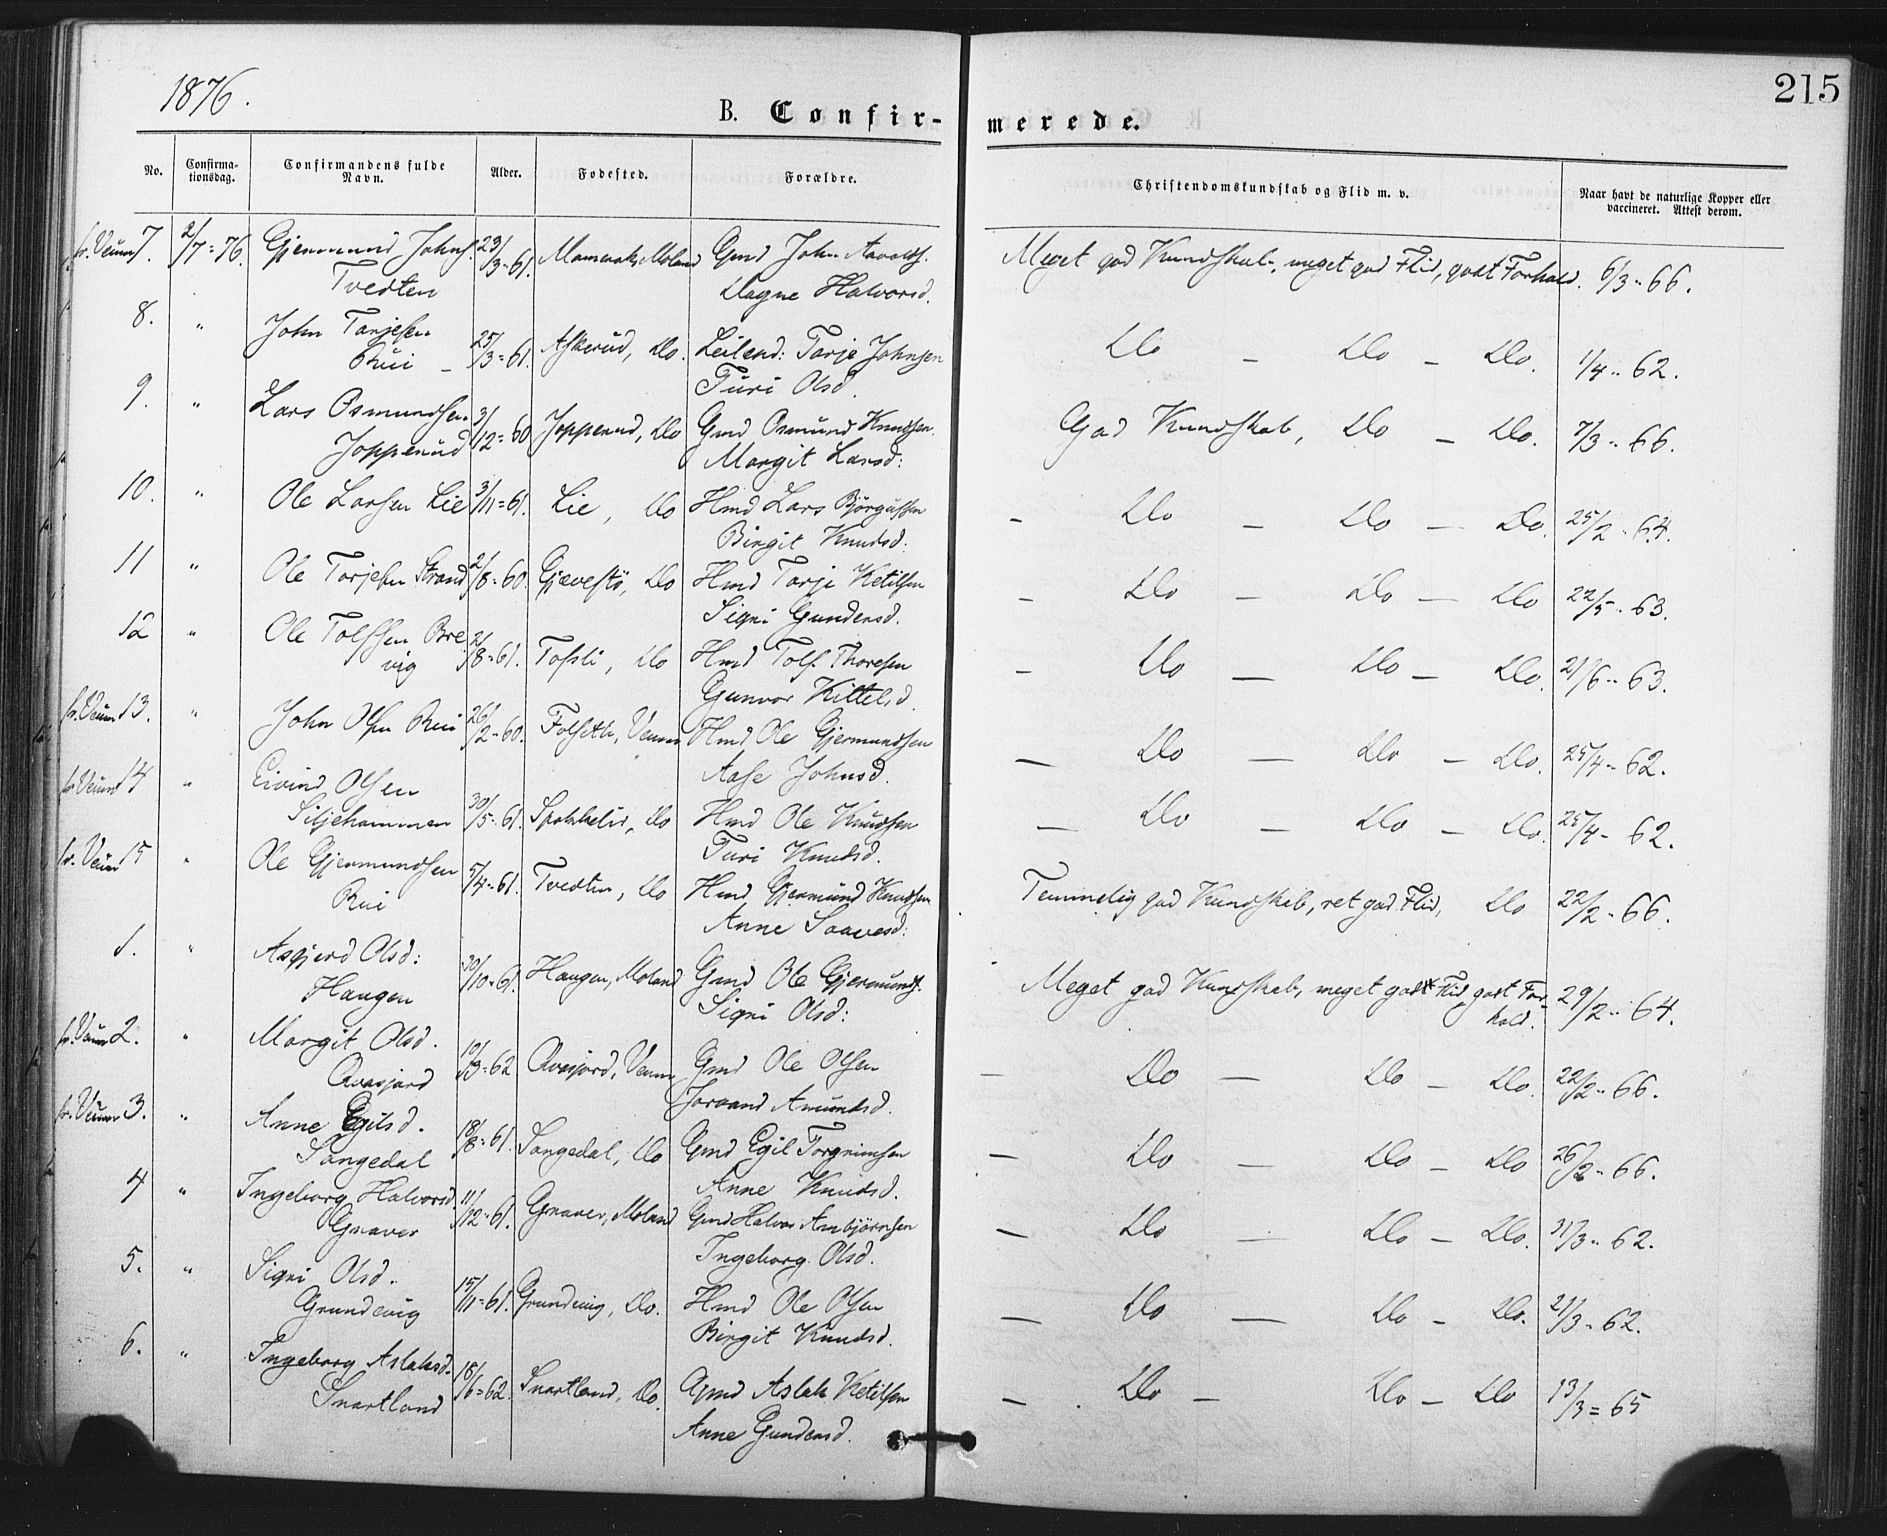 1876.
215
B. Confir-
merede.
No.
Confirma-
tionsdag.
Confirmandens fulde
Navn.
Alder.
Fødested.
Forældre.
Christendomskundskab og Flid m. v.
Naar havt de naturlige Kopper eller
vaccineret. Attest derom.
fr. Veum 7. 2/7=76. Gjermund Johns. 23/3=61. Moland Gmd John Aavolds. Meget god Kundskab, meget god Flid, godt Forhold. 6/3-66.
Tvedten Dagne Halvorsd.
8. " John Tarjesen 25/3=61. Askerud, Do. Leilend: Tarje Johnsen Do - Do - Do. 1/4-62.
Rui - Turi Olsd.
9. " Lars Osmundsen 3/12=60 Jopperud, Do Gmd Osmund Knudsen. God Kundskab, Do - Do. 7/3-66.
Jopperud Margit Larsd:
10. " Ole Larsen Lie 3/11=61. Lie, Do Hmd Lars Bjørgufsen - Do - Do - Do. 25/2-64.
Birgit Knudsd:
11 " Ole Torjesen Strand 2/8=60. Gjævestö, Do Hmd Tarje Ketilsen - Do - Do - Do 22/5-63.
Signi Gundersd.
12 " Ole Tolfsen Bre 2/8=61. Tofsli, Do Hmd Tolf Thoresen - Do - Do - Do. 21/6-63.
vig Gunvor Kittelsd.
fr. Veum 13. " John Olsen Rui 26/2-60. Folsæth, Veum Hmd Ole Gjermundsen - Do - Do - Do. 25/4-62.
Aase Johnsd.
fr. Veum 14 " Eivind Olsen
Siljehammen 30/5-61. Do Hmd Ole Knudsen - Do - Do - Do. 25/4-62.
Turi Knudsd.
fr. Veum 15 " Ole Gjermundsen 5/4-61. Tvedten, Do Hmd Gjermund Knudsen Temmelig god Kundskab, ret god Flid, Do 22/2-66.
Rui Anne Saavesd:
1. " Asgjerd Olsd: 30/10-61. Haugen, Moland Gmd Ole Gjermunds. Meget god Kundskab, meget godt Flid godt For- 29/2-64.
Haugen Signi Olsd: hold.
fr. Veum 2. " Margit Olsd. 10/3=62 Qvasjord, Veum Gmd Ole Olsen - Do - Do - Do. 22/2-66.
Qvasjord Joraand Amundsd.
fr. Veum 3. " Anne Egilsd. 18/8=61. Songedal, Do Gmd Egil Torgrimsen - Do - Do - Do 26/2-66.
Songedal Anne Knudsd.
4 " Ingeborg Halvorsd. 11/12-61. Graver, Moland Gmd Halvor Anbjørnsen - Do - Do - Do. 31/3-62.
Graver Ingeborg Olsd.
5. " Signi Olsd. 15/11=61. Grundevig, Do. Hmd Ole Olsen - Do - Do - Do. 21/3-62.
Grundevig Birgit Knudsd.
6. " Ingeborg Aslaksd. 18/6=62. Snartland, Do. Gmd Aslak Ketilsen - Do - Do - Do 13/3=65
Snartland Anne Gundersd.